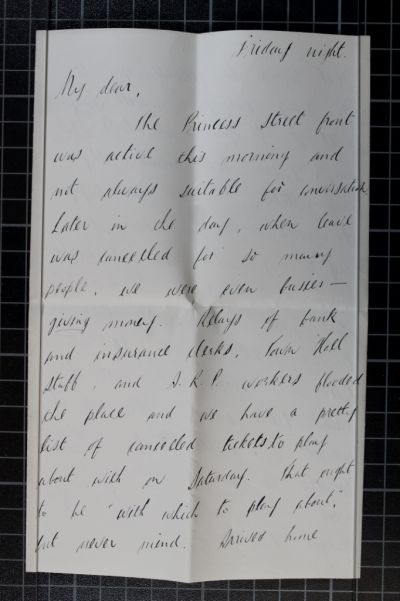 Friday night.
My dear,
The Princess Street front
was active this morning and
not always suitable for conversation.
Later in the day, when leave
was cancelled for so many
people, we were even busier –
giving money. Relays of bank
and insurance clerks, Town Hall
staff, and A.R.P. workers flooded
the place and we have a pretty
list of cancelled tickets to play
about with on Saturday. That ought
to be "with which to play about",
but never mind. Arrived home